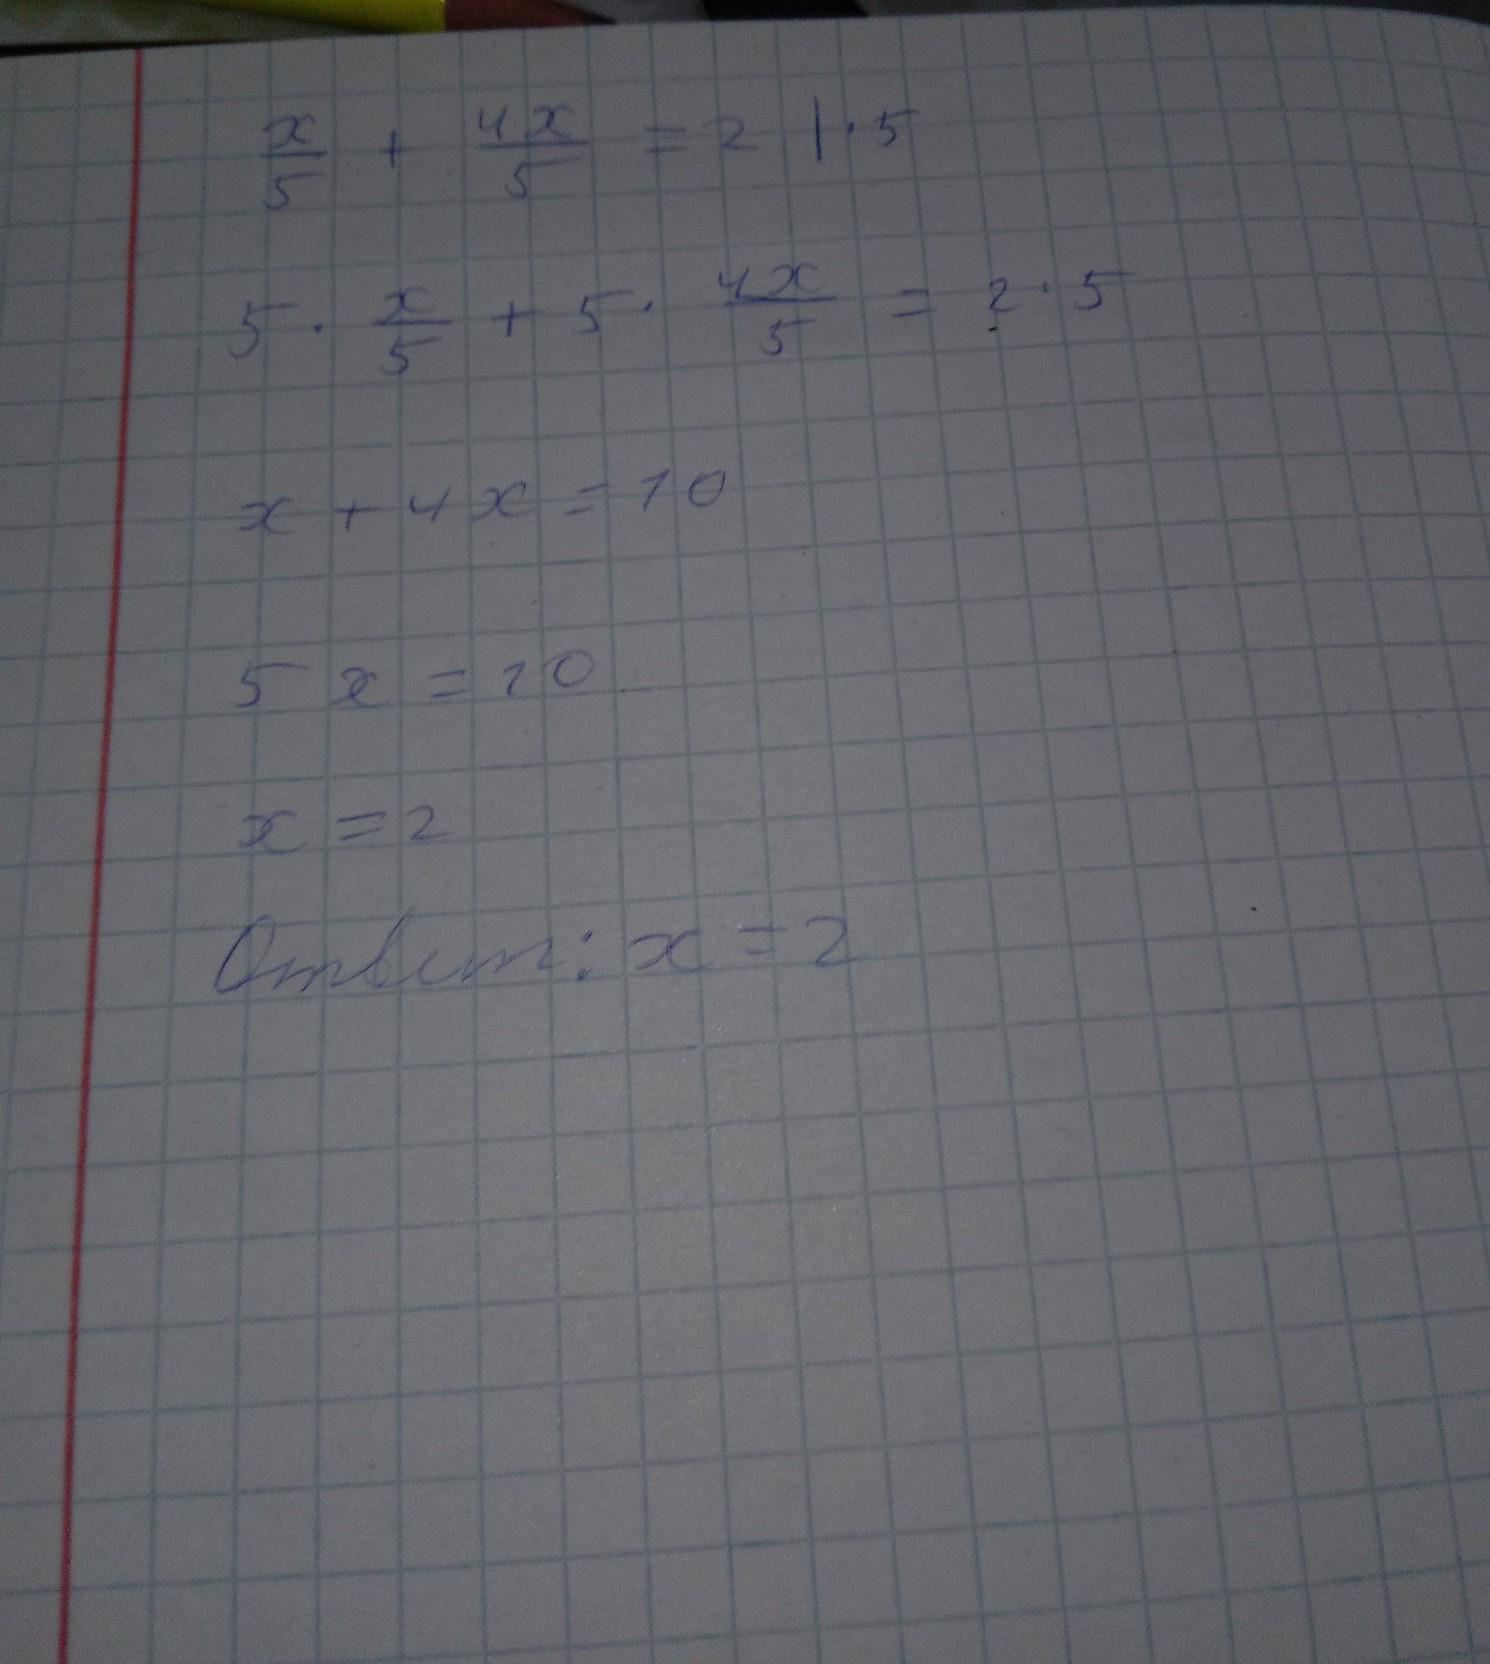 x/5 + 4x/5 = 2 | · 5
5 · x/5 + 5 · 4x/5 = 2 · 5
x + 4x = 10
5x = 10
x = 2
Ответ: x = 2